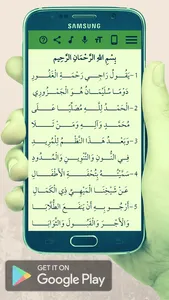 SAMSUNG
بِسْمِ اللهِ الرَّحْمَانِ الرَّحِيمِ
١ - يَقُولُ رَاجِي رَحْمَةِ الْغَفُورِ
دَوْمًا سُلَيْمَانُ هُوَ الْجَمْزُورِي
٢ - الْحَمْدُ لِلَّهِ مُصَلِّيًا عَلَى
مُحَمَّدٍ وَآلِهِ وَمَنْ تَلَا
٣ - وَبَعْدُ هَذَا النَّظْمُ لِلْمُرِيدِ
فِي النُّونِ وَالتَّنْوِينِ وَالْمُدُودِ
٤ - سَمَّيْتُهُ بِتُحْفَةِ الْأَطْفَالِ
عَنْ شَيْخِنَا الْمِيهِيِّ ذِي الْكَمَالِ
٥ - أَرْجُو بِهِ أَنْ يَنْفَعَ الطُّلَّابَا
وَالْأَجْرَ وَالْقَبُولَ وَالثَّوَابَا
GET IT ON
Google Play